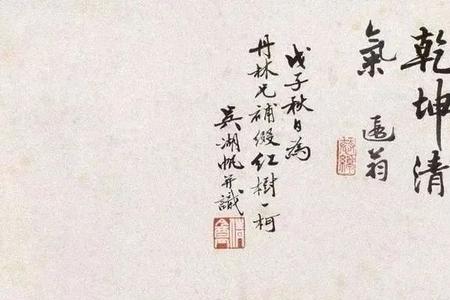 乾坤清
氣 遐翁
戊子秋日為
丹林兄補綴紅樹一柯
吳湖帆并識